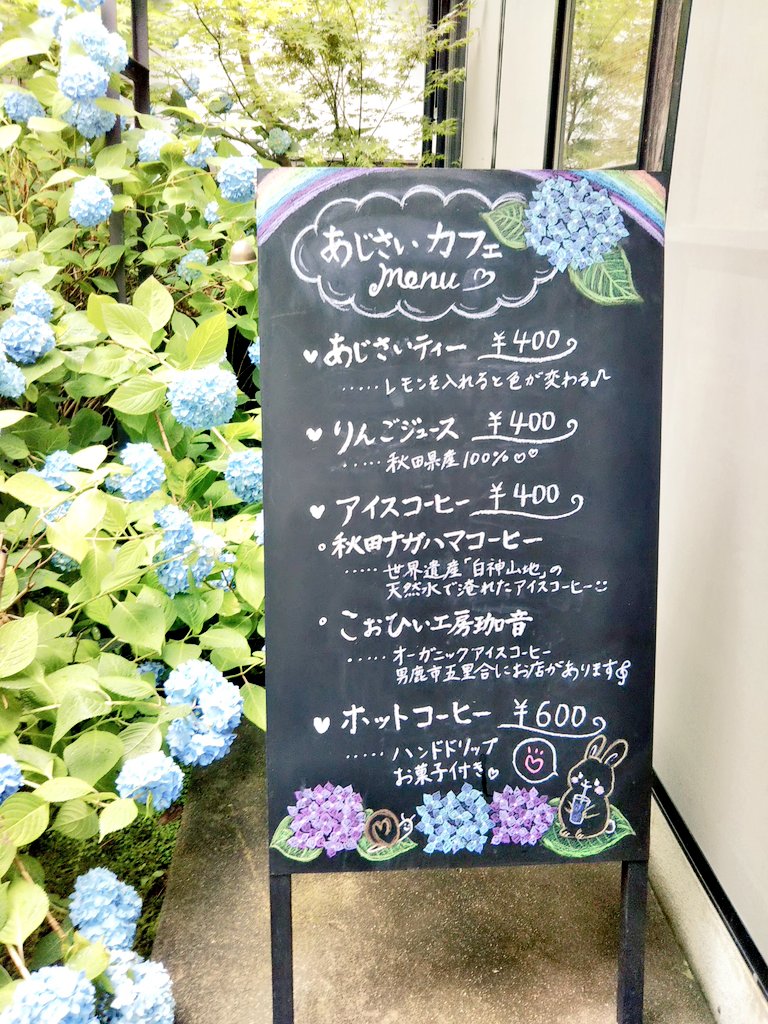 あじさいカフェ
menu
あじさいティー ¥400
.....レモンを入れると色が変わる♪
りんごジュース ¥400
.....秋田県産100%♡♡
♥ アイスコーヒー ¥400
○秋田ナガハマコーヒー
.....世界遺産「白神山地」の
天然水で淹れたアイスコーヒー
○こおひい工房珈音
.....オーガニックアイスコーヒー
男鹿市五里合にお店があります
♥ ホットコーヒー ¥600
.....ハンドドリップ
お菓子付き♡